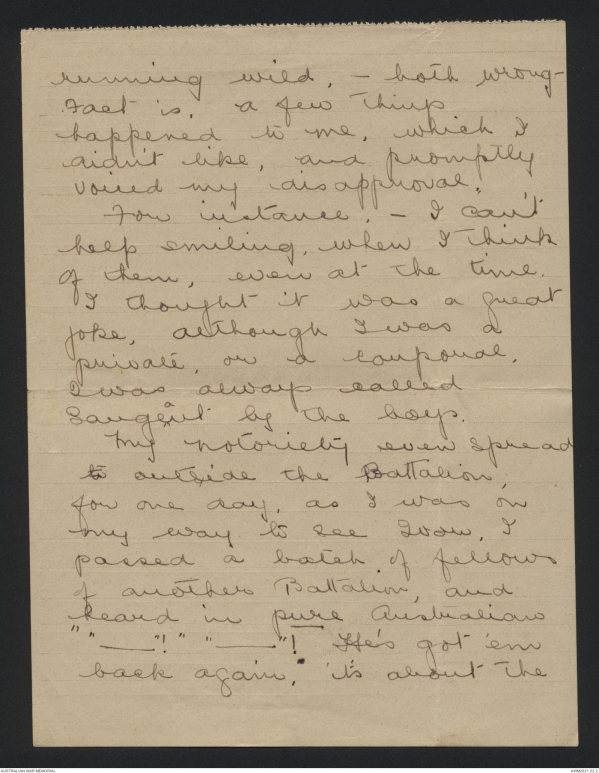 running wild, - both wrong -
Fact is, a few things
happened to me, which I
didn't like, and promptly
voiced my disapproval.
For instance, - I can't
help smiling, when I think
of them, even at the time.
I thought it was a great
joke, although I was a
private, or a corporal,
I was always called
Sargeant by the boys.
My notoriety even spread
to outside the Battalion,
for one day, as I was on
my way to see I passed
passed a batch of fellows
of another Battalion, and
heard in pure Australian
" " ——"! " " ——"! He's got 'em
back again, it's about the
AUSTRALIAN WAR MEMORIAL